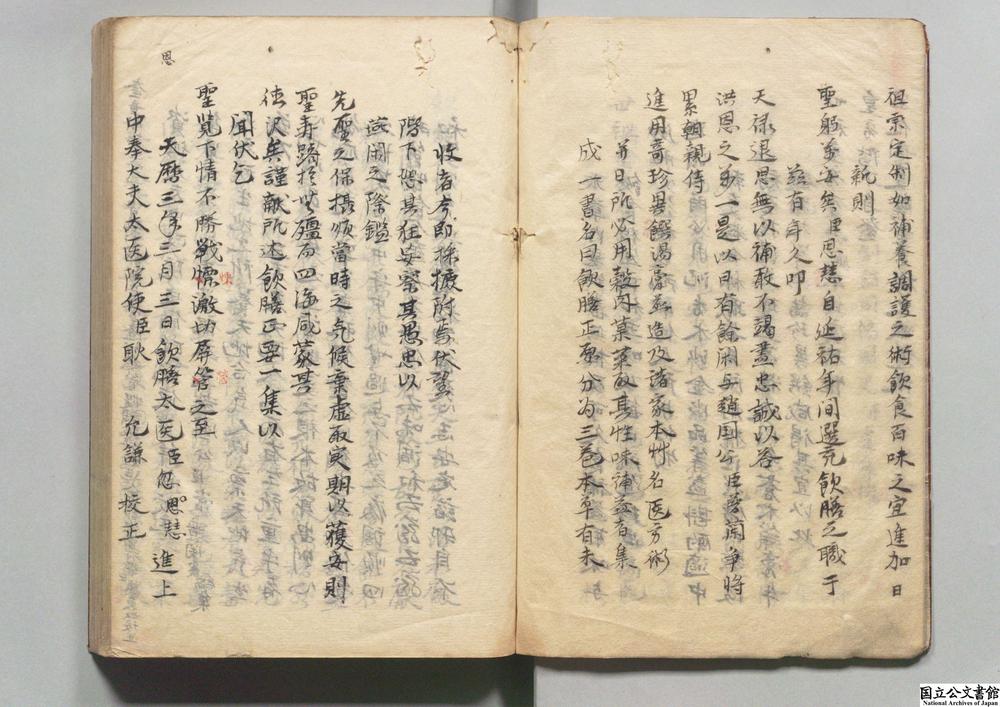 祖宗定制如補養調護之術飲食百味之宜進加日
新則
聖躬萬安矣臣思慧自延祐年間選充飲膳之職于
茲百年久叨
天禄退思無以補敢不竭盡忠誠以答
洪恩之多一是以日有餘閑与趙国公臣普蘭奚将
累朝親侍
進用奇珍異饌湯膏煎造及諸家本草名医方術
并日所必用穀肉菓菜取其性味補益者集
成一書名曰飲膳正要分为三巻本草有未
收者今即採摭附焉伏望
陛下恕其狂妄察其愚忠以
燕閑之際鑑
先聖之保攝順當時之気候棄虚取実期以獲安則
聖壽躋於無疆而四海咸蒙其
徳沢矣謹献所述飲膳正要一集以
聞伏乞
聖覧下情不勝戦慄激切屏營之至
天暦三年三月三日飲膳太医臣忽思慧進上
中奉大夫太医院使臣耿允謙校正
恩
国立公文書館
National Archives of Japan